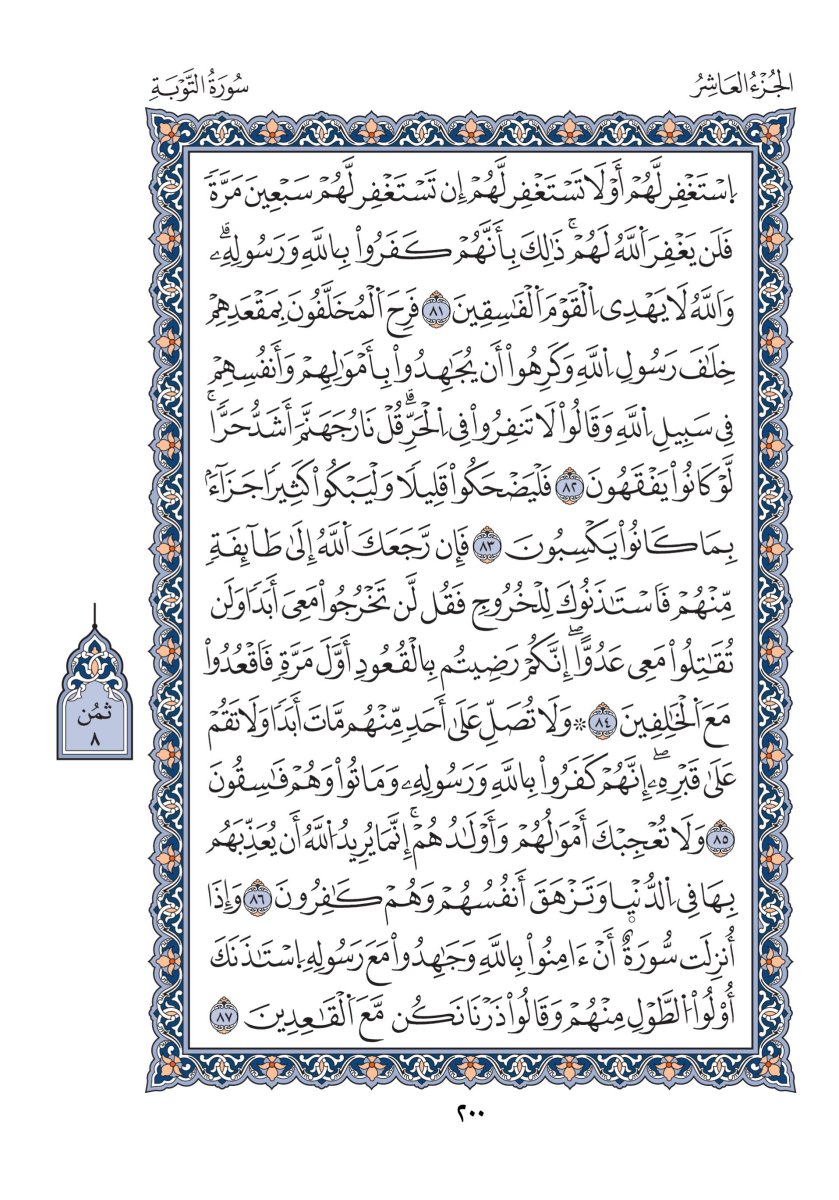 الجُزْءُ العَاشِرُ
سُورَةُ التَّوْبَةِ
اِ۪سْتَغْفِرْ لَهُمْ أَوْ لَا تَسْتَغْفِرْ لَهُمْ إِن تَسْتَغْفِرْ لَهُمْ سَبْعِينَ مَرَّةٗ
فَلَن يَغْفِرَ اَ۬للَّهُ لَهُمْۚ ذَٰلِكَ بِأَنَّهُمْ كَفَرُواْ بِاللَّهِ وَرَسُولِهِۦۗ
وَاللَّهُ لَا يَهْدِے اِ۬لْقَوْمَ اَ۬لْفَٰسِقِينَ ٨١ فَرِحَ اَ۬لْمُخَلَّفُونَ بِمَقْعَدِهِمْ
خِلَٰفَ رَسُولِ اِ۬للَّهِ وَكَرِهُواْ أَن يُجَٰهِدُواْ بِأَمْوَٰلِهِمْ وَأَنفُسِهِمْ
فِے سَبِيلِ اِ۬للَّهِ وَقَالُواْ لَا تَنفِرُواْ فِے اِ۬لْحَرِّۗ قُلْ نَارُ جَهَنَّمَ أَشَدُّ حَرّٗاۚ
لَّوْ كَانُواْ يَفْقَهُونَ ٨٢ فَلْيَضْحَكُواْ قَلِيلٗا وَلْيَبْكُواْ كَثِيرٗا جَزَآءَۢ
بِمَا كَانُواْ يَكْسِبُونَ ٨٣ فَإِن رَّجَعَكَ اَ۬للَّهُ إِلَىٰ طَآئِفَةٖ
مِّنْهُمْ فَاسْتَـٔۡذَنُوكَ لِلْخُرُوجِ فَقُل لَّن تَخْرُجُواْ مَعِيَ أَبَدٗا وَلَن
تُقَٰتِلُواْ مَعِے عَدُوّٗاۖ إِنَّكُمْ رَضِيتُم بِالْقُعُودِ أَوَّلَ مَرَّةٖ فَاقْعُدُواْ
مَعَ اَ۬لْخَٰلِفِينَ ٨٤ ۞ وَلَا تُصَلِّ عَلَىٰ أَحَدٖ مِّنْهُم مَّاتَ أَبَدٗا وَلَا تَقُمْ
عَلَىٰ قَبْرِهِۦٓۖ إِنَّهُمْ كَفَرُواْ بِاللَّهِ وَرَسُولِهِۦ وَمَاتُواْ وَهُمْ فَٰسِقُونَ
٨٥ وَلَا تُعْجِبْكَ أَمْوَٰلُهُمْ وَأَوْلَٰدُهُمْۚ إِنَّمَا يُرِيدُ اُ۬للَّهُ أَن يُعَذِّبَهُم
بِهَا فِے اِ۬لدُّنْيَا وَتَزْهَقَ أَنفُسُهُمْ وَهُمْ كَٰفِرُونَ ٨٦ وَإِذَا
أُنزِلَت سُّورَةٌ أَنْ ءَامِنُواْ بِاللَّهِ وَجَٰهِدُواْ مَعَ رَسُولِهِ اِ۪سْتَـٔۡذَنَكَ
أُوْلُواْ اُ۬لطَّوْلِ مِنْهُمْ وَقَالُواْ ذَرْنَا نَكُن مَّعَ اَ۬لْقَٰعِدِينَ ٨٧
ثُمُن
٨
٢٠٠